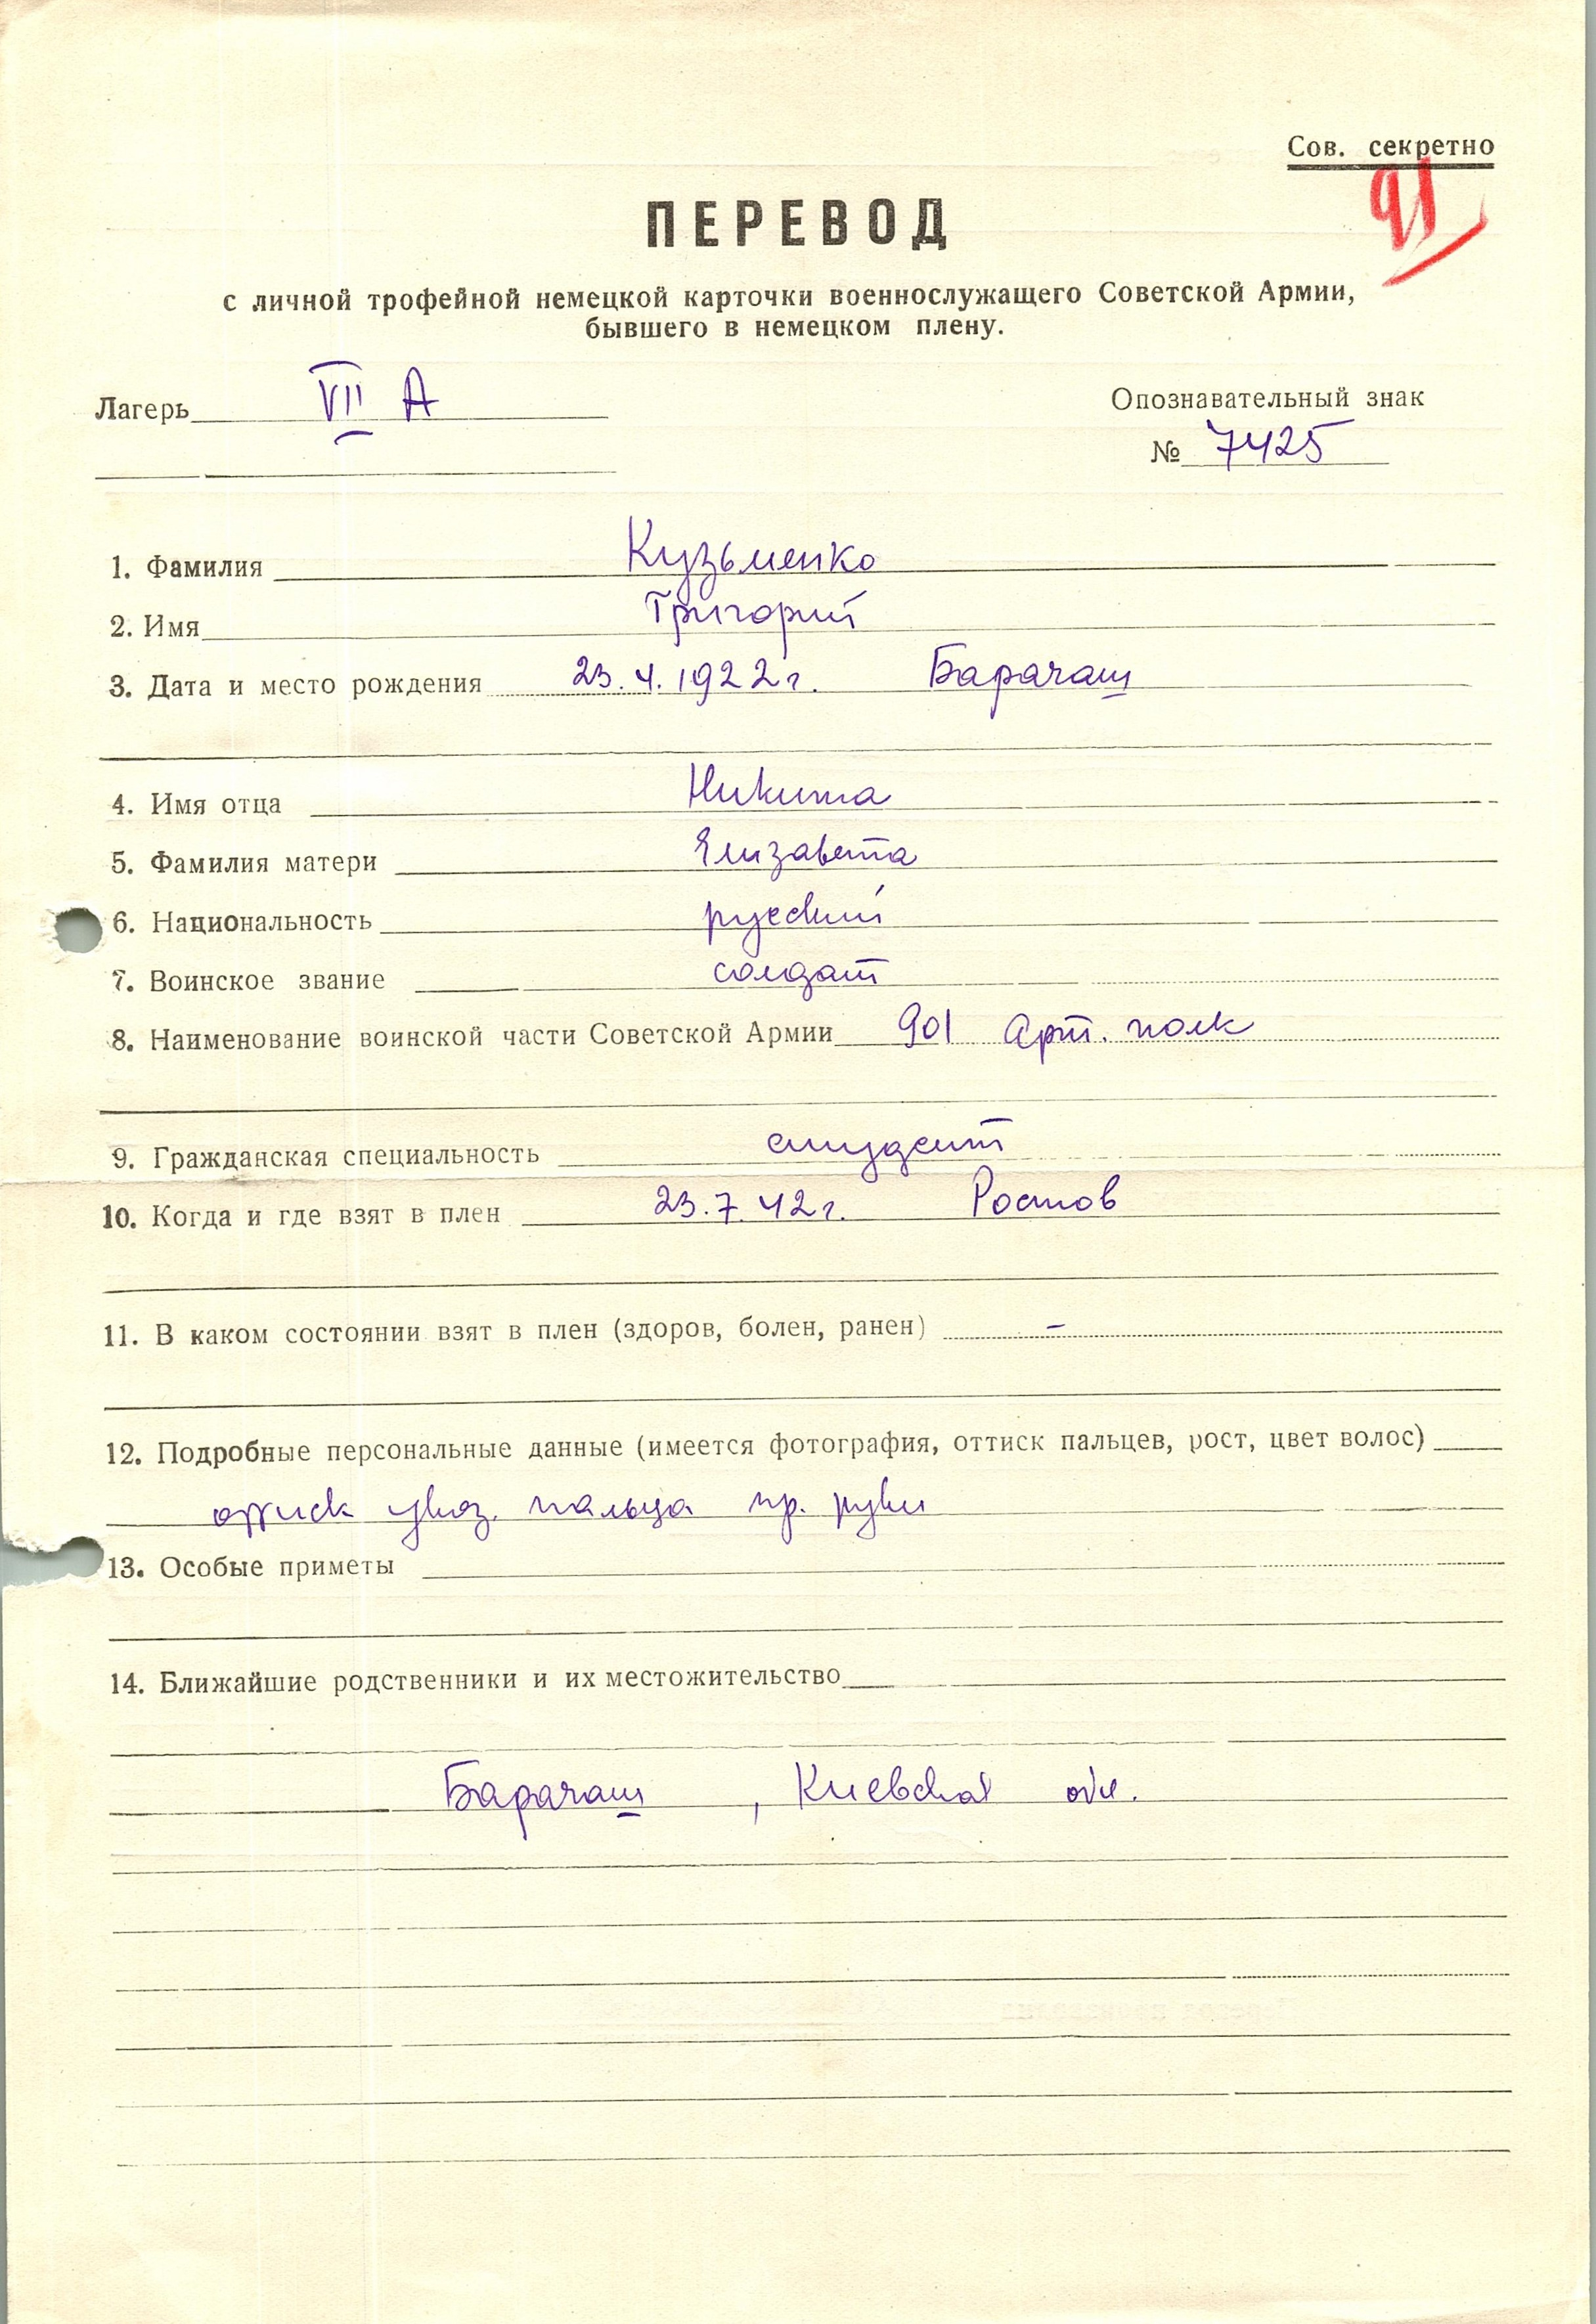 Сов. секретно
91
ПЕРЕВОД
с личной трофейной немецкой карточки военнослужащего Советской Армии,
бывшего в немецком плену.
Лагерь VII А
Опознавательный знак
№ 7425
1. Фамилия Кузьменко
2. Имя Григорий
3. Дата и место рождения 23.4.1922г. Барачаш
4. Имя отца Никита
5. Фамилия матери Елизавета
6. Национальность русский
7. Воинское звание солдат
8. Наименование воинской части Советской Армии 901 Арт. полк
9. Гражданская специальность студент
10. Когда и где взят в плен 23.7.42г. Ростов
11. В каком состоянии взят в плен (здоров, болен, ранен) –
12. Подробные персональные данные (имеется фотография, оттиск пальцев, рост, цвет волос)
оттиск указ. пальца пр. руки
13. Особые приметы
14. Ближайшие родственники и их местожительство
Барачаш, Киевской обл.